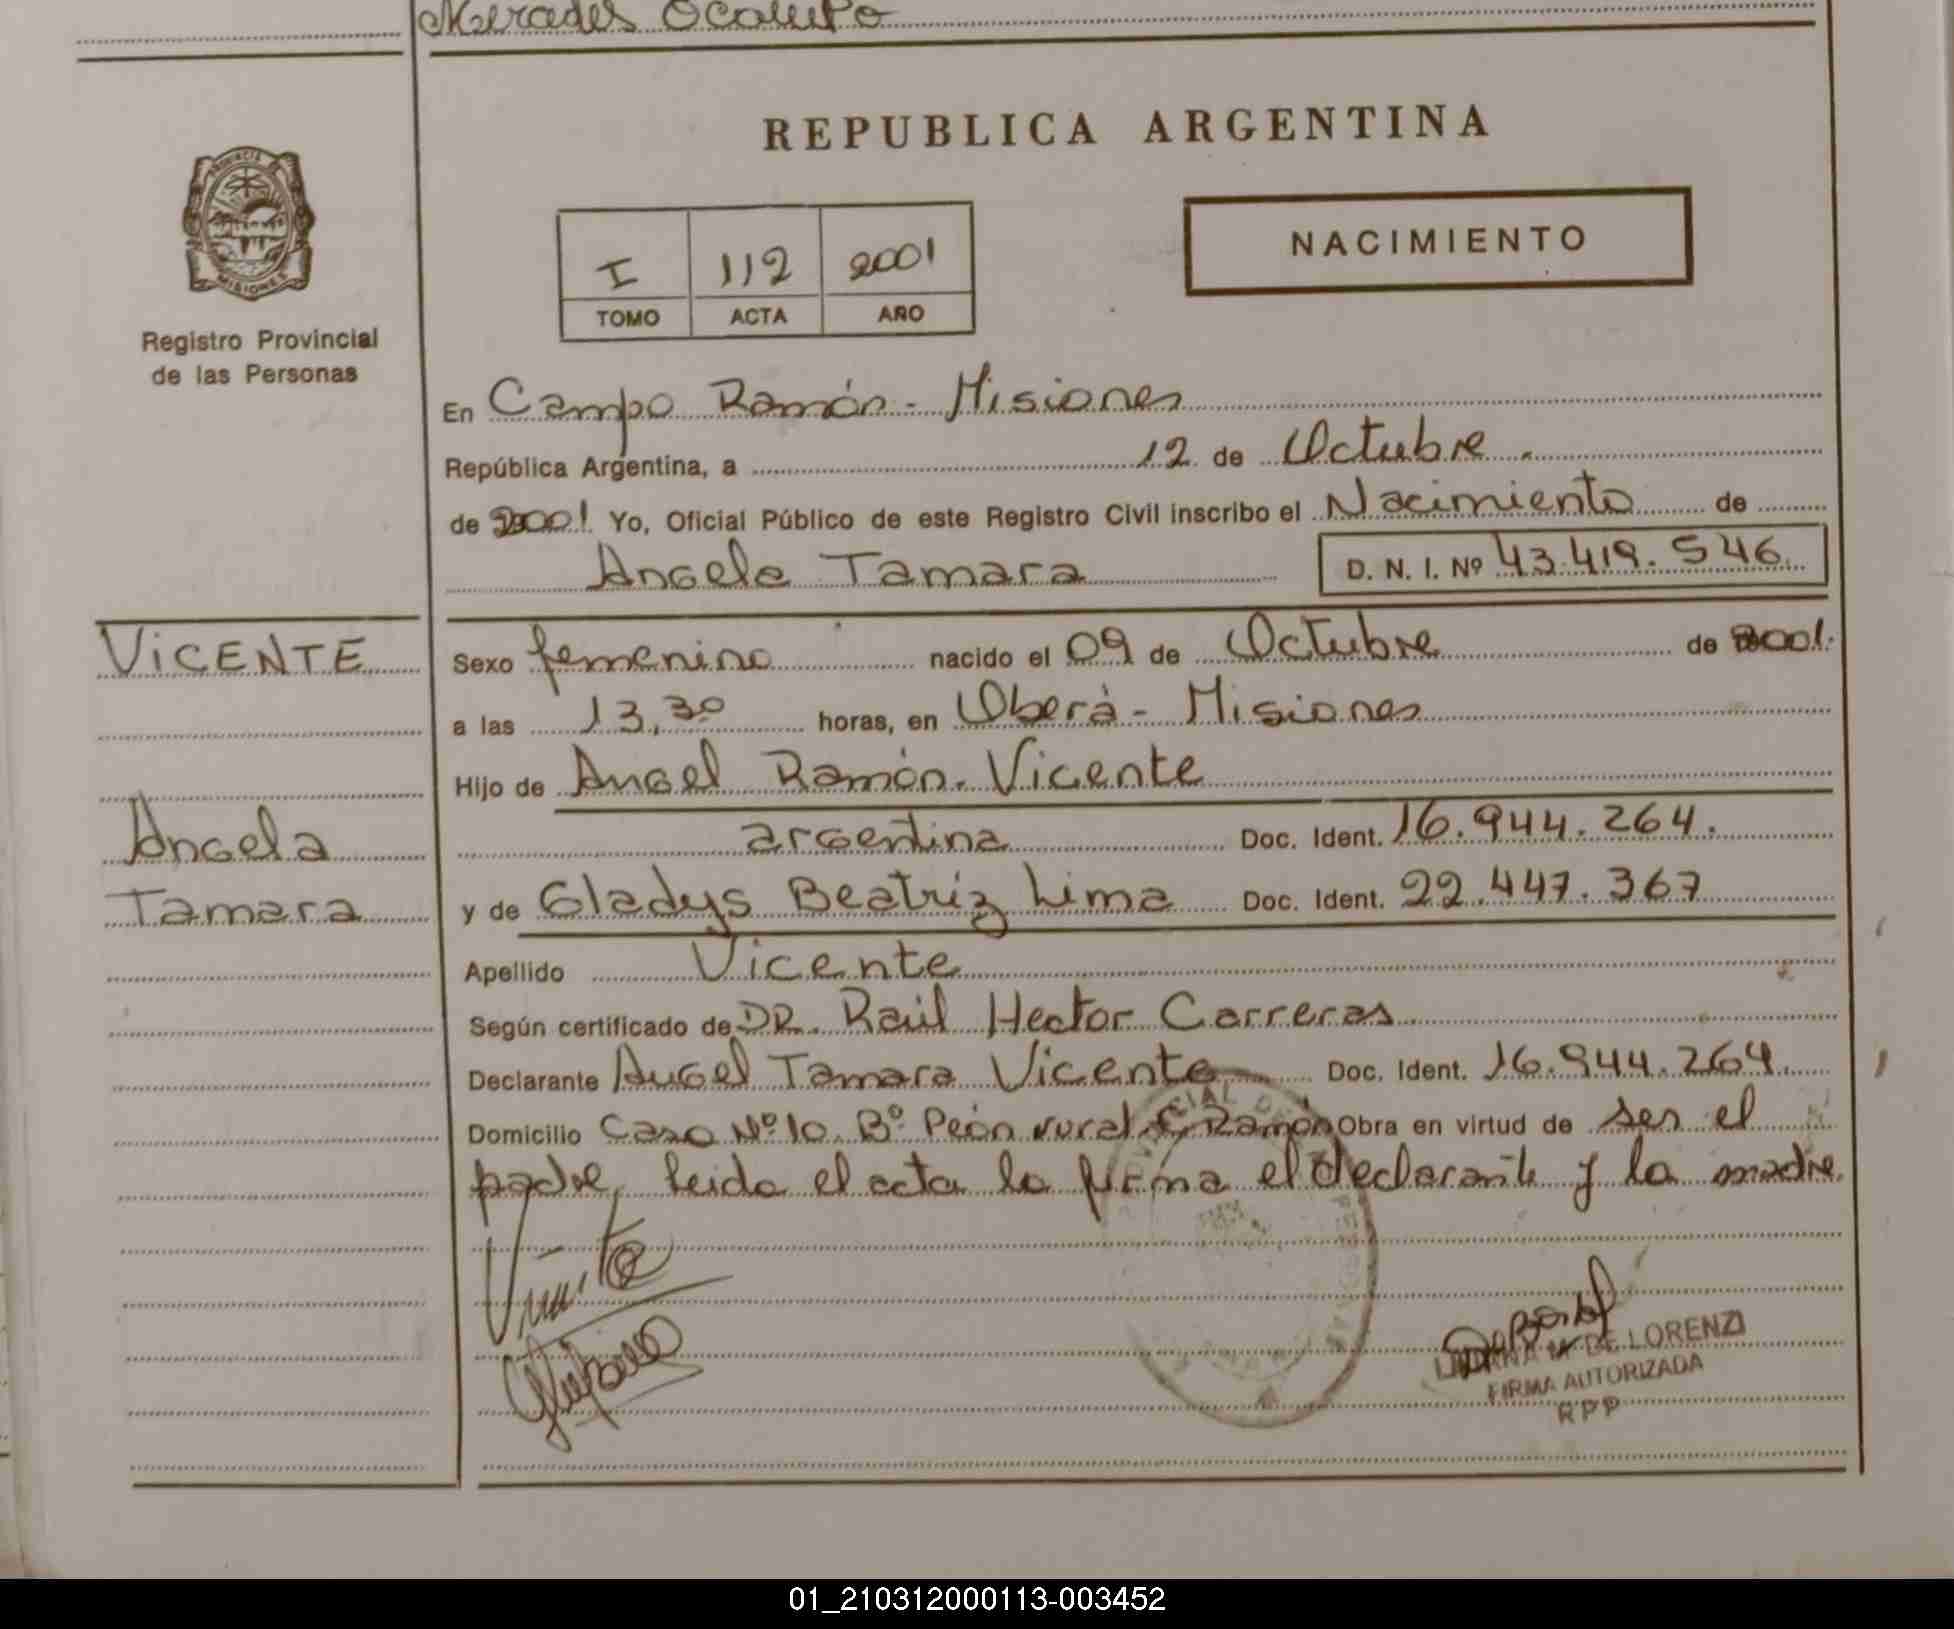 Mercedes Ocampo
REPUBLICA ARGENTINA
PROVINCIA
MISIONES
Registro Provincial
de las Personas
I 112 2001
TOMO ACTA AÑO
NACIMIENTO
En Campo Ramón - Misiones
República Argentina, a 12 de Octubre.
de 2001 Yo, Oficial Público de este Registro Civil inscribo el Nacimiento de
Angela Tamara D. N. I. Nº 43.419.546.
VICENTE
Sexo femenino nacido el 09 de Octubre de 2001.
a las 13,30 horas, en Oberá - Misiones
Hijo de Angel Ramón Vicente
Angela
argentina Doc. Ident. 16.944.264.
Tamara
y de Gladys Beatriz Lima Doc. Ident. 22.447.367
Apellido Vicente
Según certificado de DR. Raúl Hector Carreras.
Declarante Angel Tamara Vicente Doc. Ident. 16.944.264.
Domicilio Casa Nº 10 Bº Peón rural C. Ramón Obra en virtud de ser el
padre, leida el acta la firma el declarante y la madre.
M. DE LORENZI
FIRMA AUTORIZADA
RPP
01_210312000113-003452